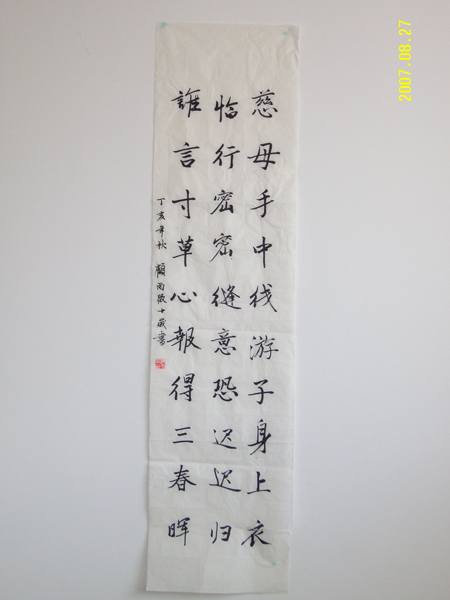 慈母手中线游子身上衣
临行密密缝意恐迟迟归
誰言寸草心報得三春晖
丁亥年秋 雨十歲書
2007.08.27